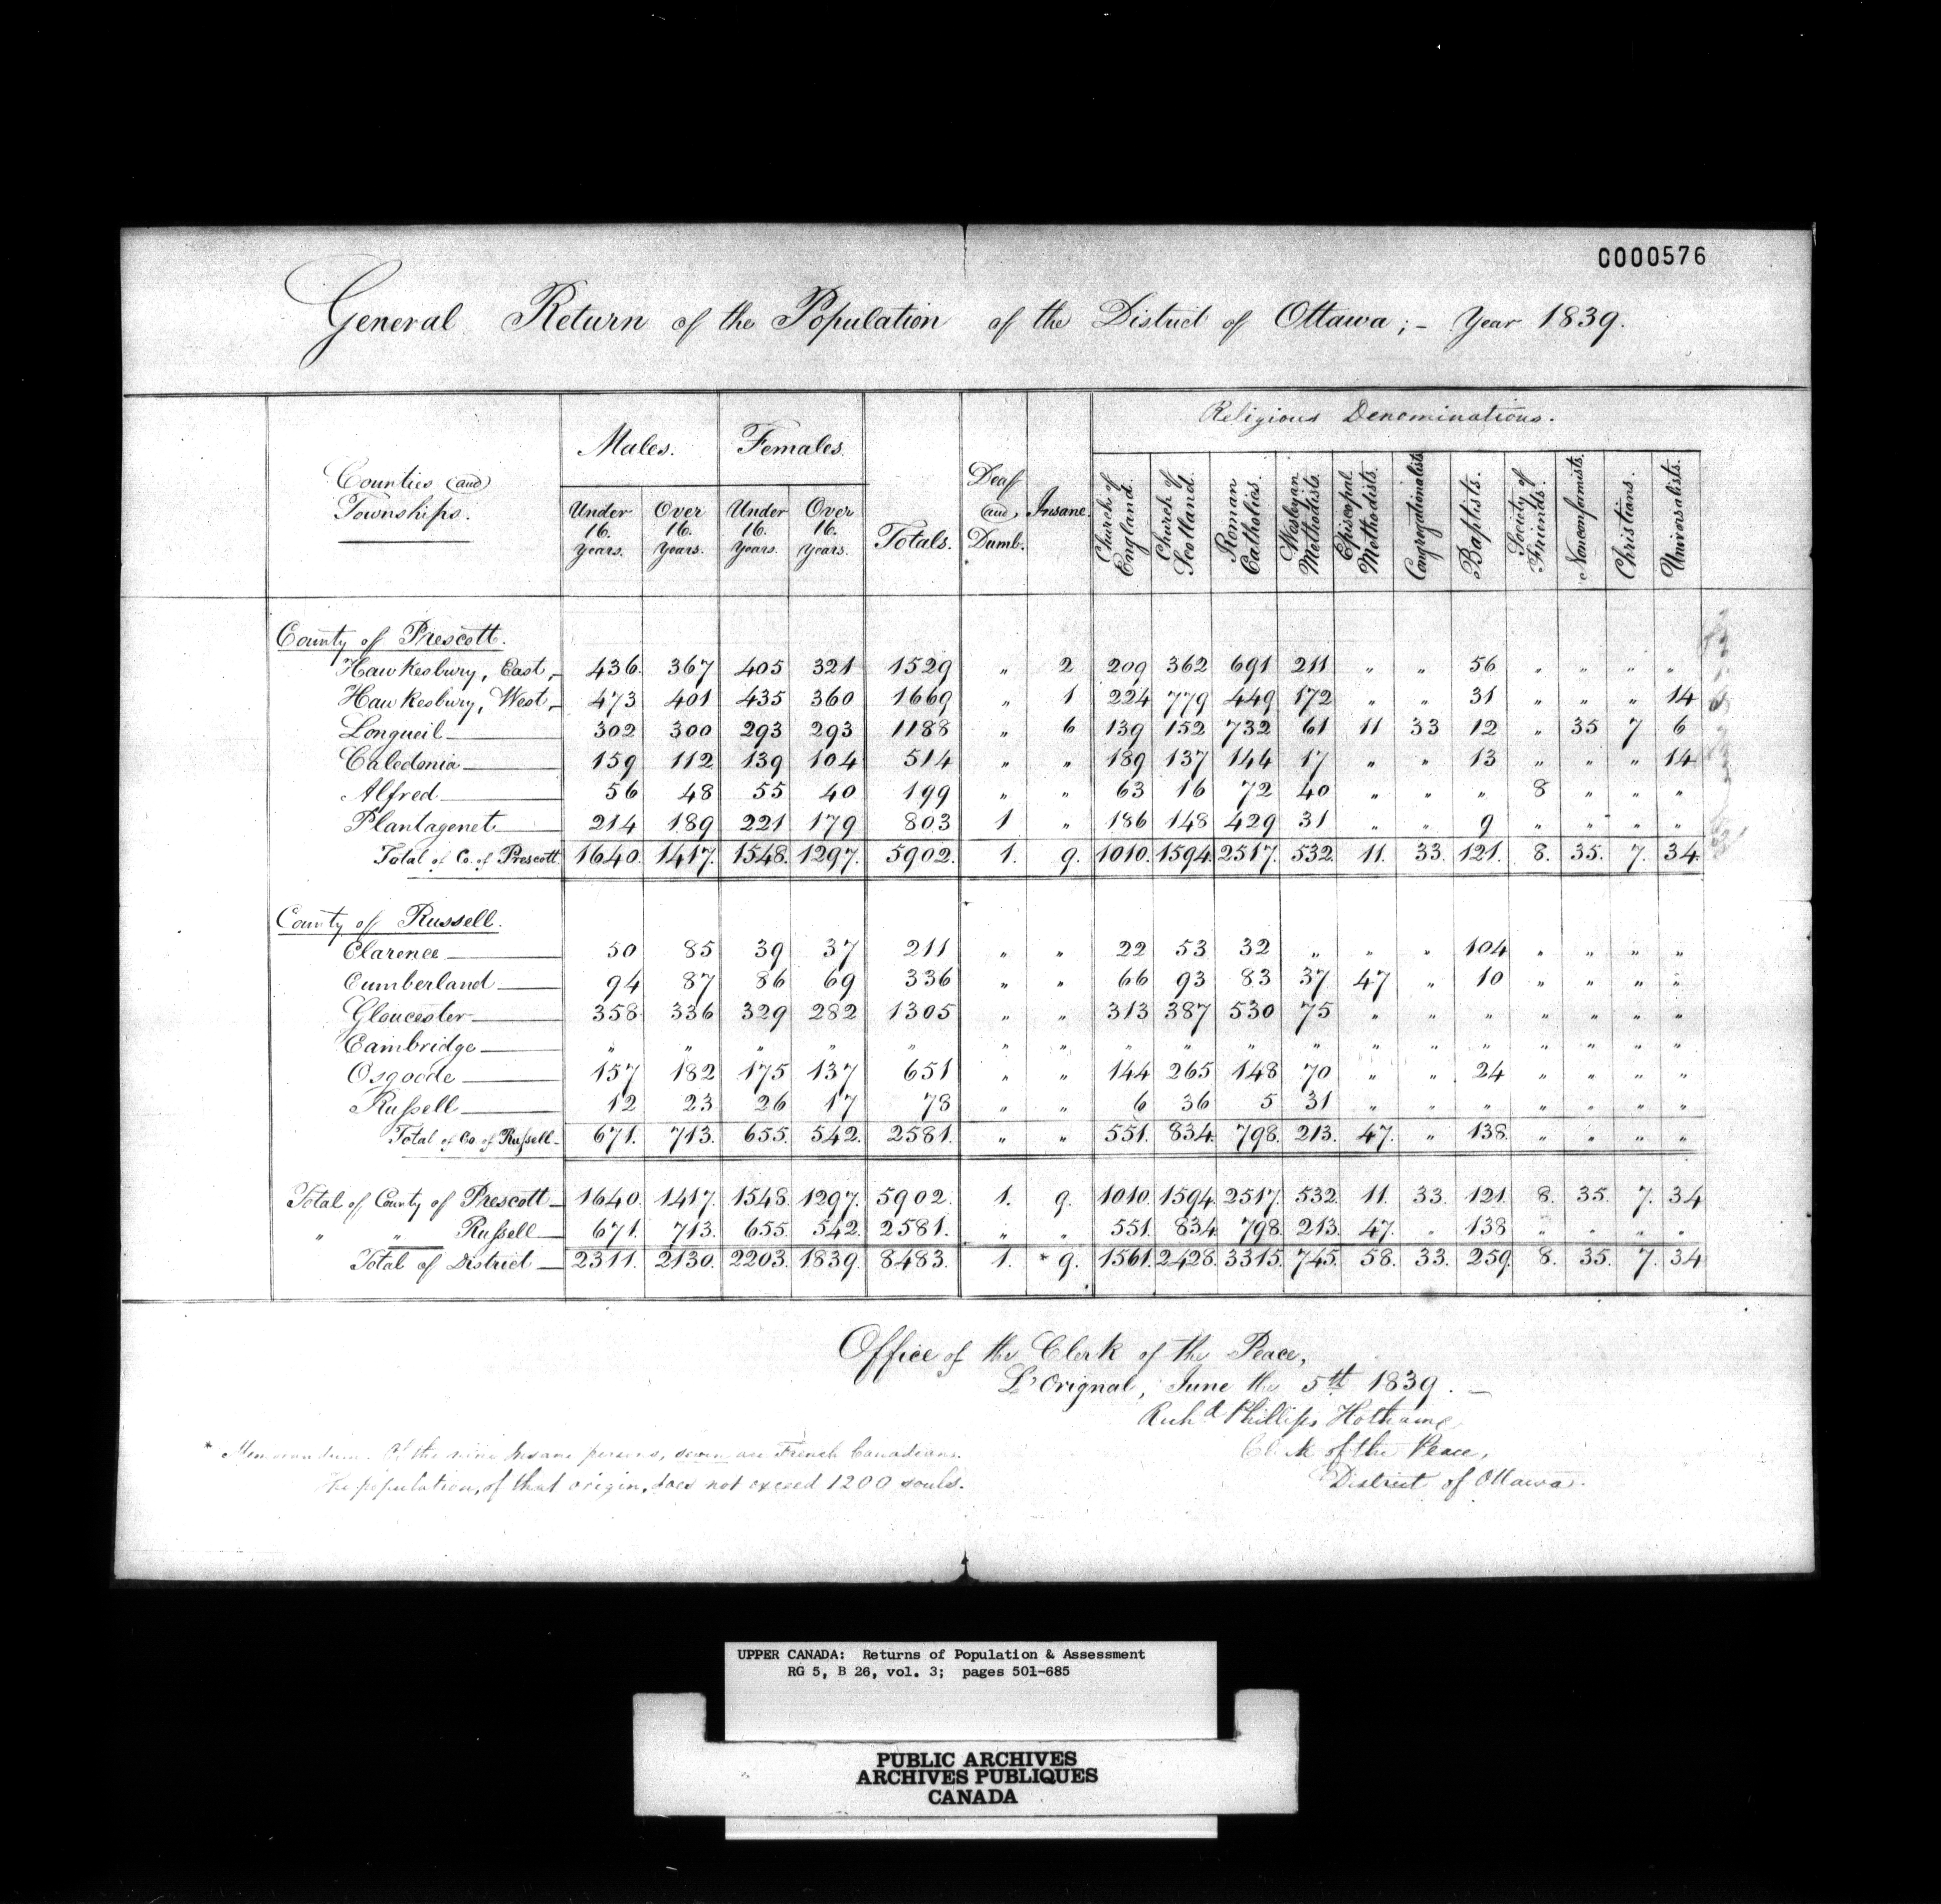 0000576
General Return of the Population of the District of Ottawa; - Year 1839.
Counties and Townships. Males. Females. Totals. Deaf and Dumb. Insane. Religious Denominations.
Under 16. Years. Over 16. Years. Under 16. Years. Over 16. Years. Church of England. Church of Scotland. Roman Catholics. Wesleyan Methodists. Episcopal Methodists. Congregationalists. Baptists. Society of Friends. Nonconformists. Christians. Universalists.
County of Prescott.
Hawkesbury, East, 436 367 405 321 1529 " 2 209 362 691 211 " " 56 " " " "
Hawkesbury, West, 473 401 435 360 1669 " 1 224 779 449 172 " " 31 " " " 14
Longueil 302 300 293 293 1188 " 6 139 152 732 61 11 33 12 " 35 7 6
Caledonia 159 112 139 104 514 " " 189 137 144 17 " " 13 " " " 14
Alfred 56 48 55 40 199 " " 63 16 72 40 " " " 8 " " "
Plantagenet 214 189 221 179 803 1 " 186 148 429 31 " " 9 " " " "
Total of Co. of Prescott 1640. 1417. 1548. 1297. 5902. 1. 9. 1010. 1594. 2517. 532. 11. 33. 121. 8. 35. 7. 34.
County of Russell.
Clarence 50 85 39 37 211 " " 22 53 32 " " " 104 " " " "
Cumberland 94 87 86 69 336 " " 66 93 83 37 47 " 10 " " " "
Gloucester 358 336 329 282 1305 " " 313 387 530 75 " " " " " " "
Cambridge " " " " " " " " " " " " " " " " " "
Osgoode 157 182 175 137 651 " " 144 265 148 70 " " 24 " " " "
Russell 12 23 26 17 78 " " 6 36 5 31 " " " " " " "
Total of Co. of Russell 671. 713. 655. 542. 2581. " " 551. 834. 798. 213. 47. " 138. " " " "
Total of County of Prescott 1640. 1417. 1548. 1297. 5902. 1. 9. 1010. 1594. 2517. 532. 11. 33. 121. 8. 35. 7. 34
" " Russell 671. 713. 655. 542. 2581. " " 551. 834. 798. 213. 47. " 138 " " " "
Total of District 2311. 2130. 2203. 1839. 8483. 1. * 9. 1561. 2428. 3315. 745. 58. 33. 259. 8. 35. 7. 34
Office of the Clerk of the Peace,
L'Orignal, June the 5th 1839. -
Richd Phillips Hotham
Clerk of the Peace,
District of Ottawa.
* Memorandum. Of the nine insane persons, seven are French Canadians.
The population, of that origin, does not exceed 1200 souls.
UPPER CANADA: Returns of Population & Assessment
RG 5, B 26, vol. 3; pages 501-685
PUBLIC ARCHIVES
ARCHIVES PUBLIQUES
CANADA